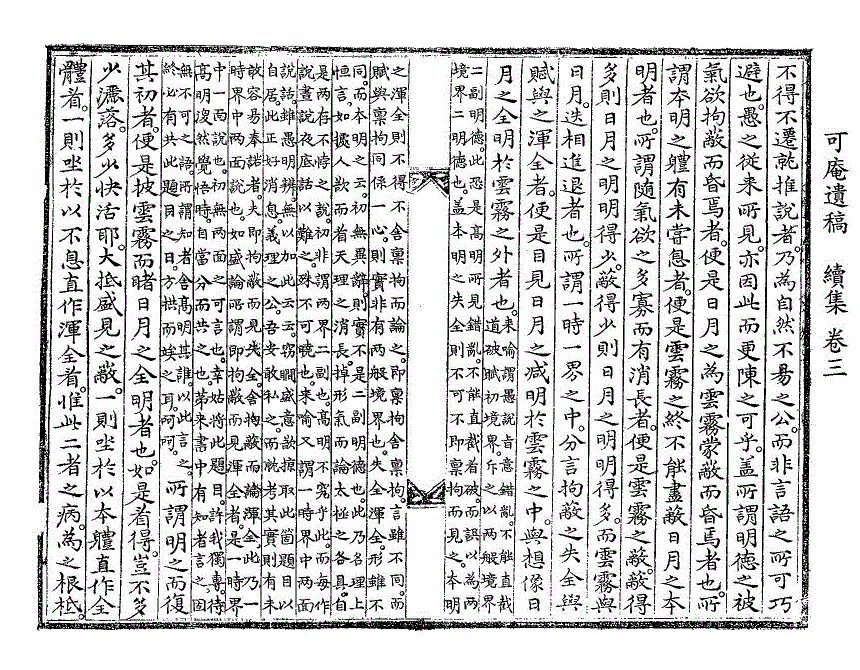 可庵遺稿 續集 卷三
不得不遷就推說者乃為自然不易之公而非言語之所可巧
避也愚之從來所見亦因此而更陳之可乎盖所謂明德之被
氣欲拘敝而昏焉者便是日月之為雲霧蒙敝而昏焉者也所
謂本明之軆有未嘗息者便是雲霧之終不能盡蔽日月之本
明者也所謂隨氣欲之多寡而有消長者便是雲霧之蔽蔽得
多則日月之明明得少蔽得少則日月之明明得多而雲霧與
日月迭相進退者也所謂一時一界之中分言拘蔽之失全與
賦與之渾全者便是目見日月之减明於雲霧之中與想像日
月之全明於雲霧之外者也
來喻謂愚說旨意錯亂不能直截
道破賦初境界斥之以兩般境界
二副明德此恐是高明所見錯亂不能直截看破而誤以為兩
境界二明德也盖本明之失全則不可不即稟拘而見之本明
之渾全則不得不舍稟拘而論之即稟拘舍稟拘言雖不同而
賦與稟拘同係一心則實非有兩般境界也失全渾全形雖不
同而本明之云初無異辭則實不是二副明德也此乃名理上
恒言如據人欲而看天理之消長掉形氣而論太極之各具自
是兩存不悖之說初非謂兩界二副也高明不究乎此而每作
說晝說夜底話以難之殊不可曉也來喻又謂一時界中兩面
說話雖愚明辨無以如此云云窃瞷盛意欲掠取此箇題目以
自居此正好消息義理之公吾安敢私之而就考其實則有未
敢容易奉諾者夫即拘蔽而見失全舍拘蔽而論渾全此乃一
時界中兩面說也如盛論所謂即拘蔽而見渾全者是一時界
中一面說也初無兩面之可言也幸姑將此題目許我獨專待
高明浚然覺悟時自當分而共之也第來書中有知者言之固
無不可之語所謂知者舍高明其誰以此言之
終必有共此題目之日方拱而竢之耳呵呵
所謂明之而復
其初者便是披雲霧而睹日月之全明者也如是看得豈不多
少灑落多少快活耶大抵盛見之蔽一則坐於以本軆直作全
體看一則坐於以不息直作渾全看惟此二者之病為之根柢